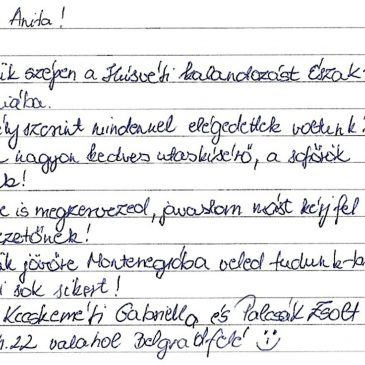 Anita!
ik szépen a Húsvéti kalandozást Észak-
iába.
ly szerint mindennel elégedettek voltunk:
nagyon kedves utaskísérő, a sofőrök
b!
e is megszervezed, javaslom mást kérj fel
zetőnek!
ák jövőre Montenegróba veled tudunk-
i sok sikert!
Kecskeméti Gabriella és Palcsák Zsolt
.22 valahol Belgrád felé